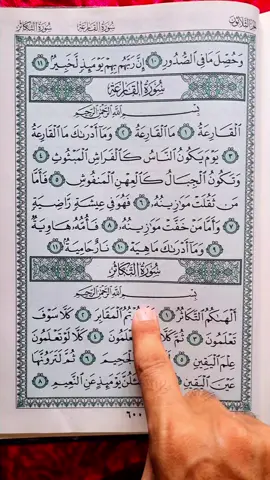 سُورَةُ القَارِعَة سُورَةُ التَّكَاثُر
وَحُصِّلَ مَا فِي ٱلصُّدُورِ ١٠ إِنَّ رَبَّهُم بِهِمْ يَوْمَئِذٍ لَّخَبِيرٌ ١١
سُورَةُ القَارِعَة
بِسْمِ ٱللَّهِ ٱلرَّحْمَٰنِ ٱلرَّحِيمِ
ٱلْقَارِعَةُ ١ مَا ٱلْقَارِعَةُ ٢ وَمَآ أَدْرَىٰكَ مَا ٱلْقَارِعَةُ
٣ يَوْمَ يَكُونُ ٱلنَّاسُ كَٱلْفَرَاشِ ٱلْمَبْثُوثِ ٤
وَتَكُونُ ٱلْجِبَالُ كَٱلْعِهْنِ ٱلْمَنفُوشِ ٥ فَأَمَّا
مَن ثَقُلَتْ مَوَٰزِينُهُۥ ٦ فَهُوَ فِي عِيشَةٍ رَّاضِيَةٍ
٧ وَأَمَّا مَنْ خَفَّتْ مَوَٰزِينُهُۥ ٨ فَأُمُّهُۥ هَاوِيَةٌ
٩ وَمَآ أَدْرَىٰكَ مَا هِيَهْ ١٠ نَارٌ حَامِيَةٌۢ ١١
سُورَةُ التَّكَاثُر
بِسْمِ ٱللَّهِ ٱلرَّحْمَٰنِ ٱلرَّحِيمِ
أَلْهَىٰكُمُ ٱلتَّكَاثُرُ ١ ٱلْمَقَابِرَ ٢ كَلَّا سَوْفَ
تَعْلَمُونَ ٣ ثُمَّ كَلَّا تَعْلَمُونَ ٤ كَلَّا لَوْ تَعْلَمُونَ
عِلْمَ ٱلْيَقِينِ ٥ ٱلْجَحِيمَ ٦ ثُمَّ لَتَرَوُنَّهَا
عَيْنَ ٱلْيَقِينِ ٧ يَوْمَئِذٍ عَنِ ٱلنَّعِيمِ ٨
٦٠٠